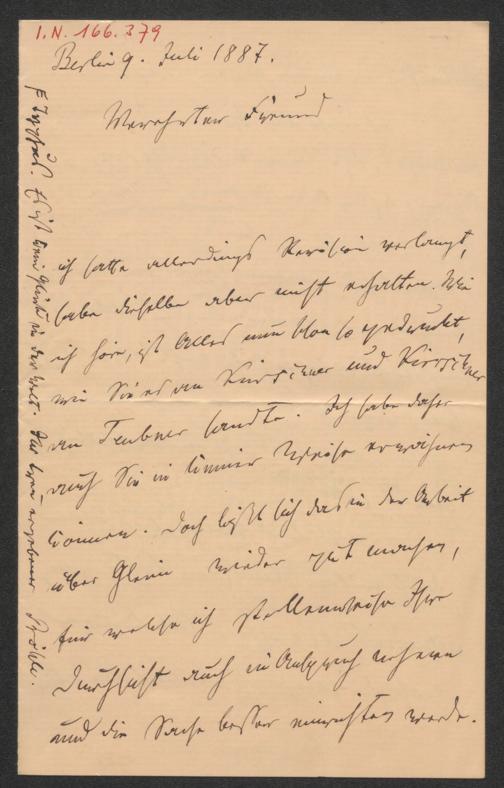 I.N. 166.379
Berlin 9. Juli 1887.
Verehrter Freund
ich hatte allerdings Revision verlangt,
habe dieselbe aber nicht erhalten. Wie
ich höre, ist Alles nun blos so gedruckt,
wie Sie es an Kürschner und Kürschner
an Teubner sandte. Ich habe daher
auch Sie in keiner Weise erwähnen
können. Doch läßt sich das in der Arbeit
über Gleim wieder gut machen,
für welche ich stellenweise Ihre
Durchsicht auch in Anspruch nehmen
und die Sache besser einrichten werde.
Es ist kein Glück in der Welt. Ihr treu ergebener Pröhle.